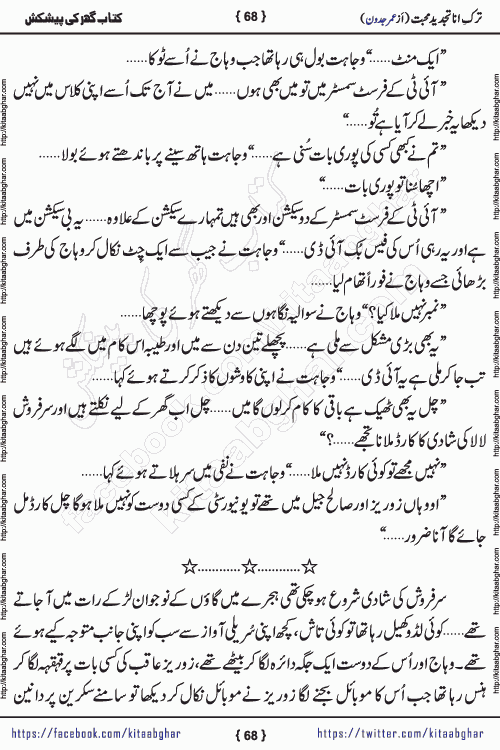 ترکِ انا تجدیدِ محبت (از عمر جدون) { 68 } کتاب گھر کی پیشکش
”ایک منٹ......“ وجاہت بول ہی رہا تھا جب وہاج نے اُسے ٹوکا......
”آئی ٹی کے فرسٹ سمسٹر میں تو میں بھی ہوں...... میں نے آج تک اُسے اپنی کلاس میں نہیں
دیکھا یہ خبر لے کر آیا ہے تُو......“
”تم نے کبھی کسی کی پوری بات سُنی ہے......“ وجاہت ہاتھ سینے پر باندھتے ہوئے بولا......
”اچھا سُنا تو پوری بات......“
”آئی ٹی کے فرسٹ سمسٹر کے دو سیکشن اور بھی ہیں تمہارے سیکشن کے علاوہ...... یہ بی سیکشن میں
ہے اور یہ رہی اُس کی فیس بُک آئی ڈی......“ وجاہت نے جیب سے ایک چٹ نکال کر وہاج کی طرف
بڑھائی جسے وہاج نے فوراً تھام لیا......
”نمبر نہیں ملا کیا؟“ وہاج نے سوالیہ نگاہوں سے دیکھتے ہوئے پوچھا......
”یہ بھی بڑی مشکل سے ملی ہے...... پچھلے تین دن سے میں اور طیبہ اس کام میں لگے ہوئے ہیں
تب جا کر ملی ہے یہ آئی ڈی......“ وجاہت نے اپنی کاوشوں کا ذکر کرتے ہوئے کہا......
”چل یہ بھی ٹھیک ہے باقی کا کام کر لوں گا میں...... چل اب گھر کے لیے نکلتے ہیں اور سرفروش
لالا کی شادی کا کارڈ ملا نا تجھے......؟“
”نہیں مجھے تو کوئی کارڈ نہیں ملا......“ وجاہت نے نفی میں سر ہلاتے ہوئے کہا......
”اوو ہاں زوریز اور صالح جیل میں تھے تو یونیورسٹی کے کسی دوست کو نہیں ملا ہو گا چل کارڈ مل
جائے گا آنا ضرور......“
☆............☆............☆
سرفروش کی شادی شروع ہو چکی تھی ہجرے میں گاؤں کے نوجوان لڑکے رات میں آ جاتے
تھے...... کوئی لڈو کھیل رہا تھا تو کوئی تاش، کچھ اپنی سُریلی آواز سے سب کو اپنی جانب متوجہ کیے ہوئے
تھے۔ وہاج اور اُس کے دوست ایک جگہ دائرہ لگا کر بیٹھے تھے، زوریز عاقب کی کسی بات پر قہقہہ لگا کر
ہنس رہا تھا جب اُس کا موبائل بجنے لگا زوریز نے موبائل نکال کر دیکھا تو سامنے سکرین پر دانین
https://facebook.com/kitaabghar { 68 } https://twitter.com/kitaabghar
http://kitaabghar.com